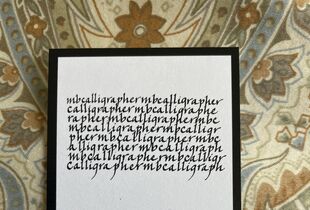 mbcalligraphermbcalligrapher
calligraphermbcalligrapher
raphermbcalligraphermbc
mbcalligraphermbcalligr
phermbcalligraphermbc
alligraphermbcalligraph
mbcalligraphermbcalligr
calligraphermbcalligraph